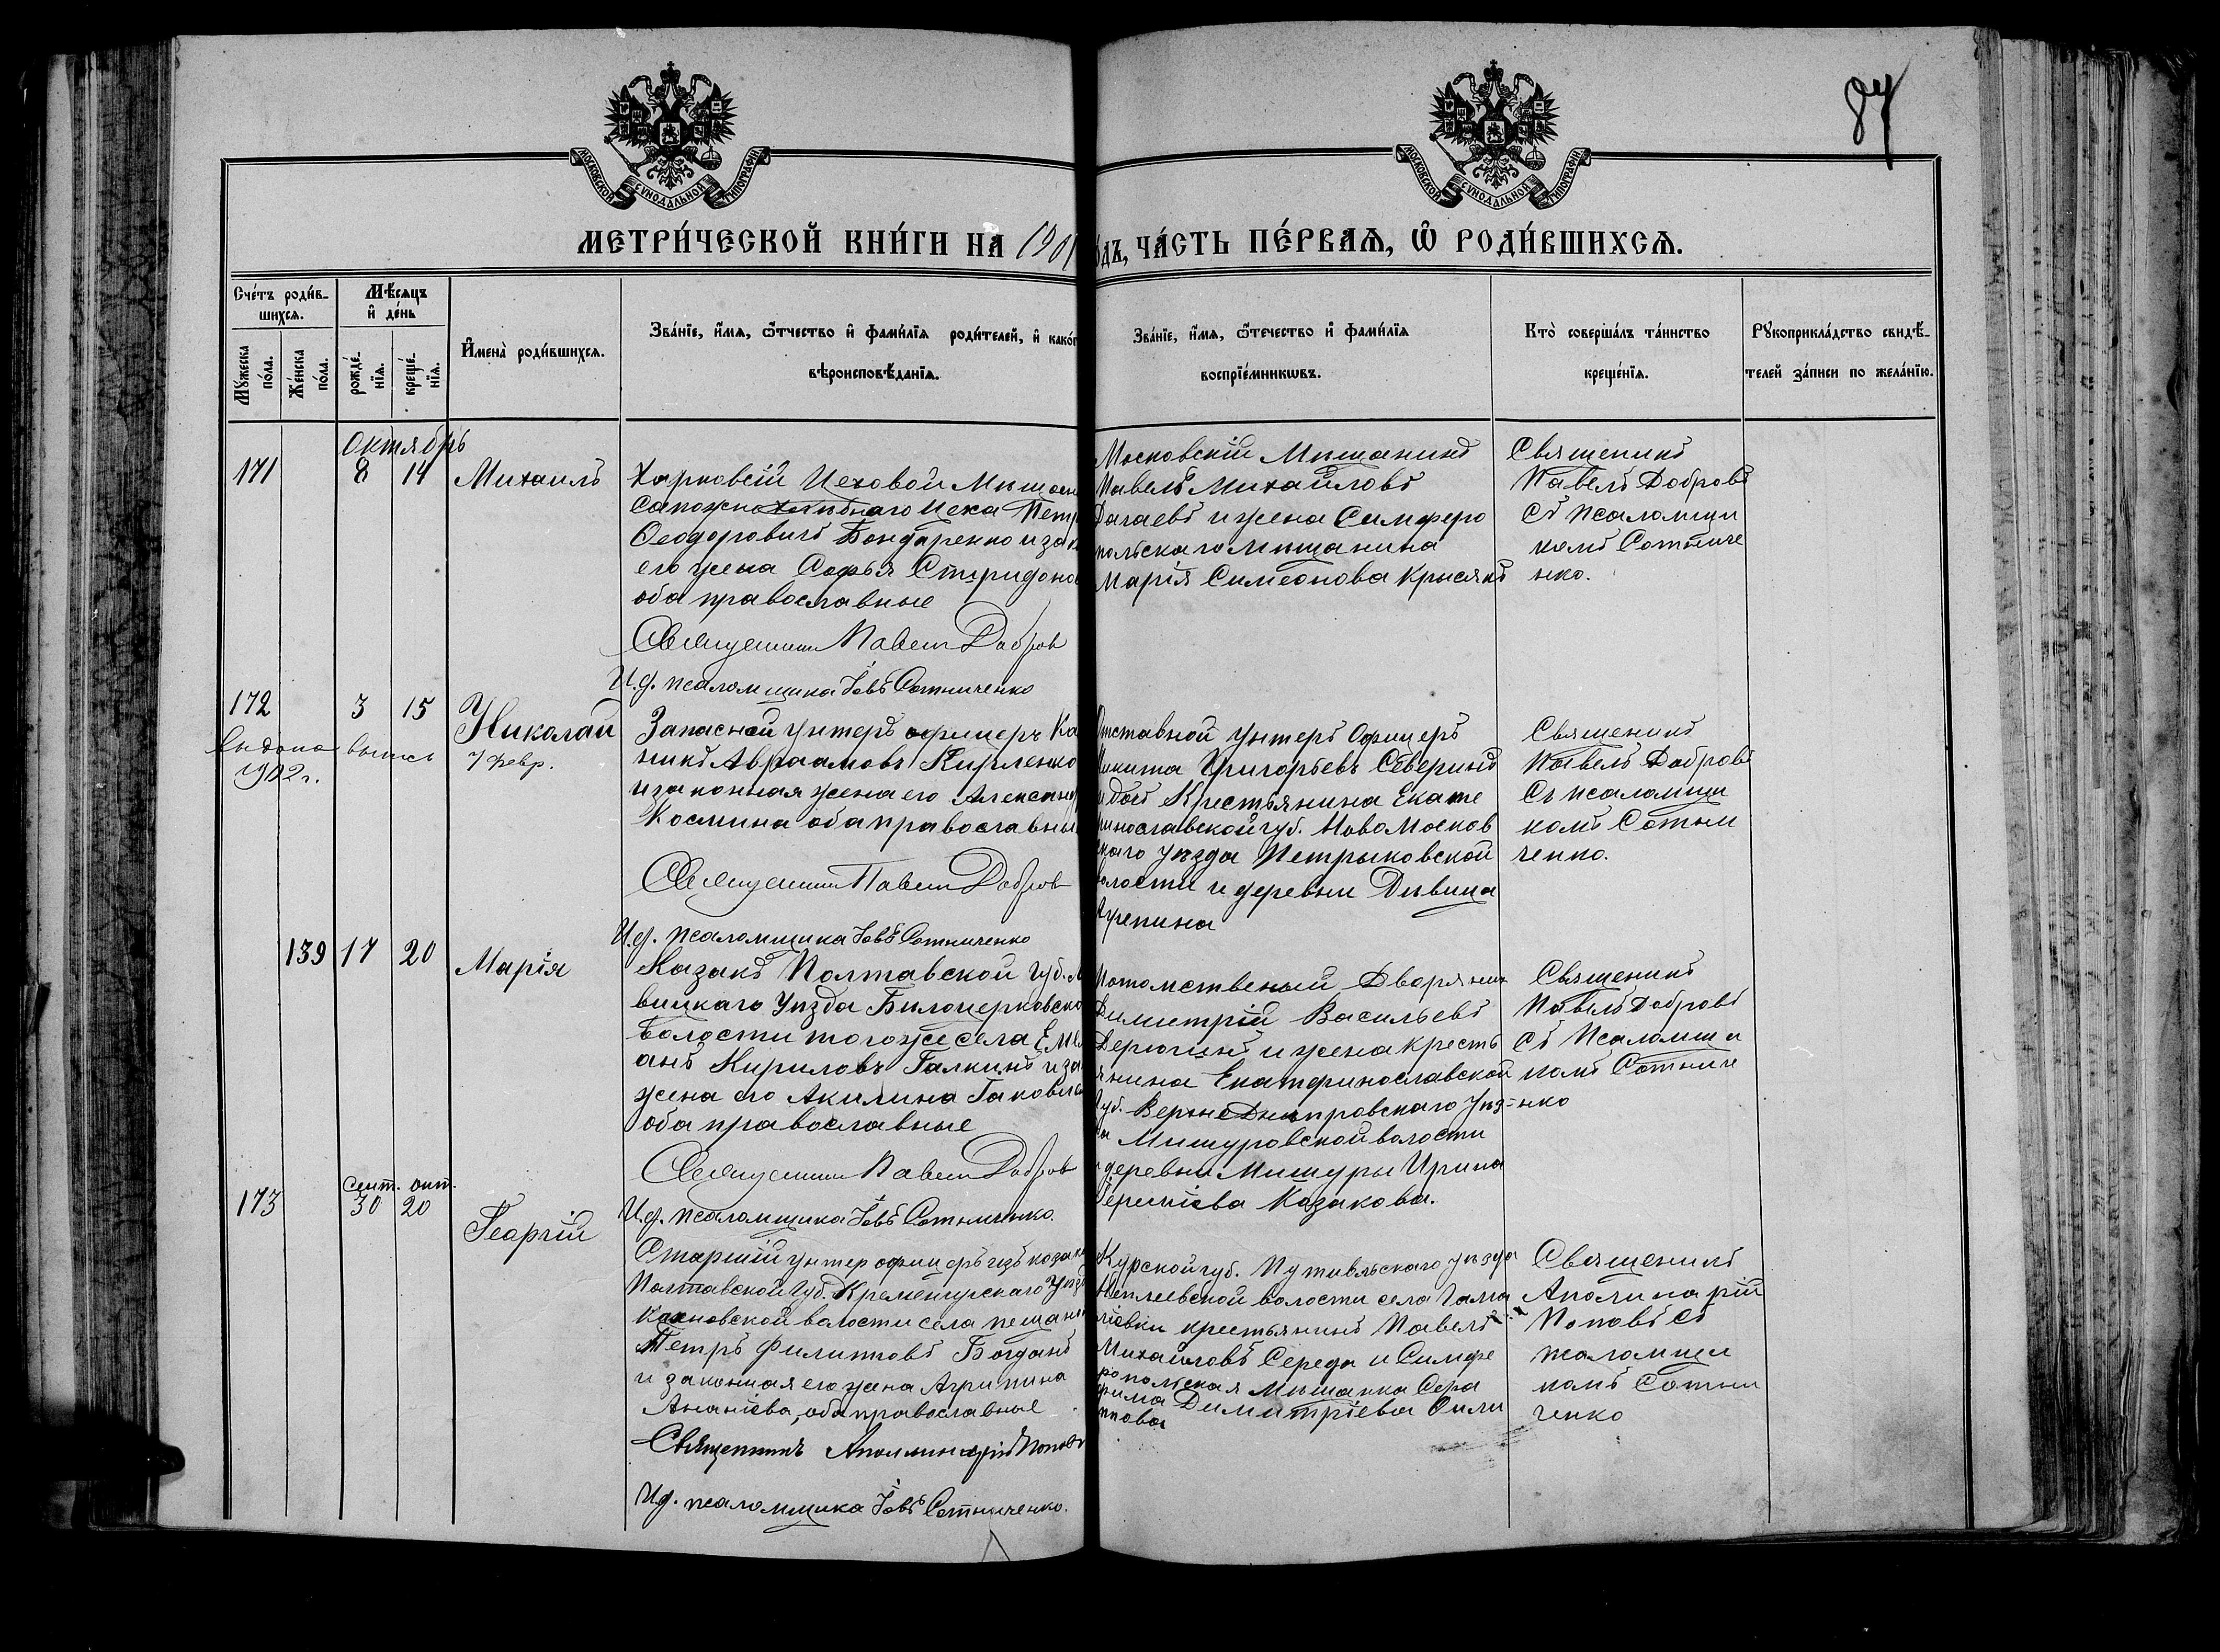 87
МОСКОВСКОЙ СѴНОДАЛЬНОЙ ТИПОГРАФІИ
МОСКОВСКОЙ СѴНОДАЛЬНОЙ ТИПОГРАФІИ
МЕТРИ́ЧЕСКОЙ КНИ́ГИ НА 1901
ѡ́дъ, ЧА́СТЬ ПЕ́РВАѦ, Ѡ҆ РОДИ́ВШИХСѦ.
Сче́тъ роди́в-
шихсѧ.
Мѣ́сѧцъ
и҆ де́нь
Мꙋ́жеска
по́ла.
Же́нска
по́ла.
рожде́-
нїѧ.
креще́-
нїѧ.
И҆мена̀ роди́вшихсѧ.
Зва́нїе, и҆́мѧ, ѻ҆́тчество и҆ фами́лїѧ роди́телей, и҆ како́г
вѣроисповѣ́данїѧ.
Зва́нїе, и҆́мѧ, ѻ҆те́чество и҆ фами́лїѧ
воспрїе́мникѡвъ.
Кто̀ соверша́лъ та́инство
креще́нїѧ.
Рꙋкоприкла́дство свидѣ́-
телей за́писи по жела́нїю.
Октябрь
171 8 14 Михаилъ
Харковсій Цеховой Мѣщан
Сапожно го Цеха Петр
Ѳеодоровичъ Бондаренко и зак
его жена Софья Спиридонов
оба православные
Священник Павел Добров
И.д. псаломщика Іовъ Сотниченко
Московскій Мѣщанинъ
Павелъ Михайловъ
и жена Симферо
польскаго мѣщанина
Марія Симеонова
Священикъ
Павелъ Добровъ
съ Псаломщи
комъ Сотниче
нко.
172 3 15 Николай
выпись 7 февр.
902 г.
Запасной унтеръ офицеръ Ка
никъ Авраамовъ Кириленко
и законная жена его Александ
Космина оба православны
Священник Павел Добров
И.д. псаломщика Іовъ Сотниченко
Отставной унтеръ Офицеръ
Никита Григорьевъ Северинъ
и дочь Крестьянина Екате
ринославской губ. Новомосков
скаго уѣзда Петрыковской
волости и деревни Дѣвица
Агрепина
Священикъ
Павелъ Добровъ
Съ псаломщи
комъ Сотни
ченко.
139 17 20 Марія
Казакъ Полтавской губ. Л
вицкаго Уѣзда Бѣлоцерковско
волости того же села Емел
анъ Кириловъ Галкинъ и за
жена его Акилина Іаковле
оба православные
Священник Павел Добров
И.д. псаломщика Іовъ Сотниченко.
Потомственый Дворянин
Димитрій Васильевъ
и жена кресть
янина Екатеринославской
губ. Верхнеднѣпровскаго Уѣз-
да Мишуровской волости
и деревни Мишуры Ирина
Казакова.
Священикъ
Павелъ Добровъ
съ Псаломщи
комъ Сотниче
нко
Сент. окт.
173 30 20
Георгій
Старшій унтер офицеръ изъ козак
Полтавской губ. Кременчугскаго Уѣзд
волости села Пещан
Петръ Филиповъ Богданъ
и законная его жена Агрипина
Ананіева, оба православные
Священникъ Аполлинарій Попов
И.д. псаломщика Іовъ Сотниченко.
Курской губ. Путивльскаго уѣзда
волости села Гама
лѣовки крестьянинъ Павелъ
Михайловъ Середа и Симфе
ропольская Мѣщанка Сера
фима Димитріева Фили
ппова
Священикъ
Аполинарій
Поповъ съ
псаломщи
комъ Сотни
ченко